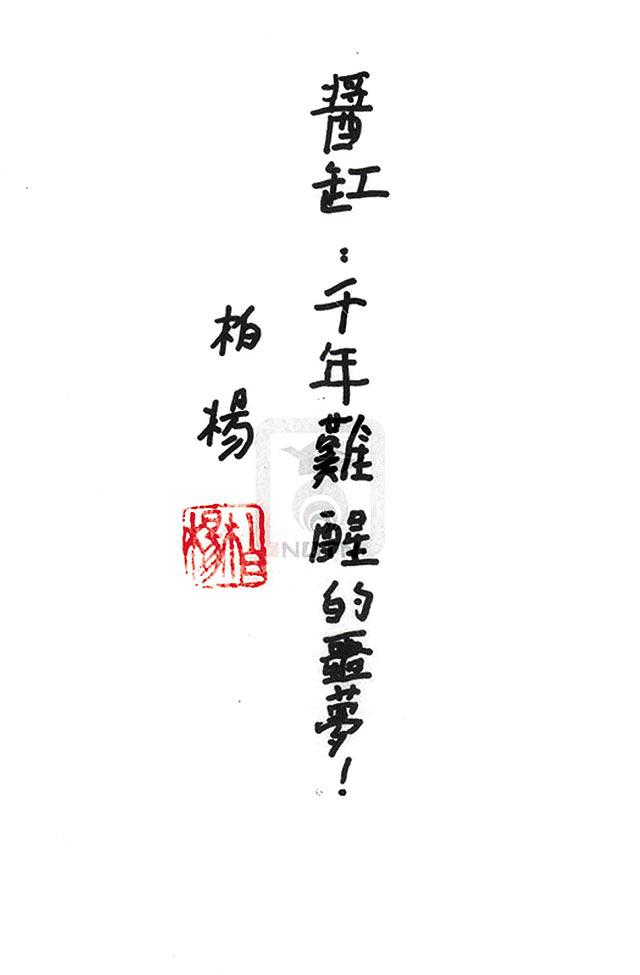 醬缸：千年難醒的噩夢！
柏楊
柏楊